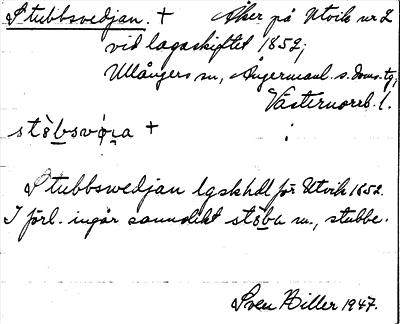 Stubbsvedjan. + Åker på Utvik nr 2
vid lagaskiftet 1852;
Ullångers sn, Ångermanl. s. doms. tg,
Västernorrl. l.
stòbsvø̀ra +
Stubbswedjan lgskhdl för Utvik 1852.
I förl. ingår sannolikt stòba m., stubbe.
Sven Hiller 1947.